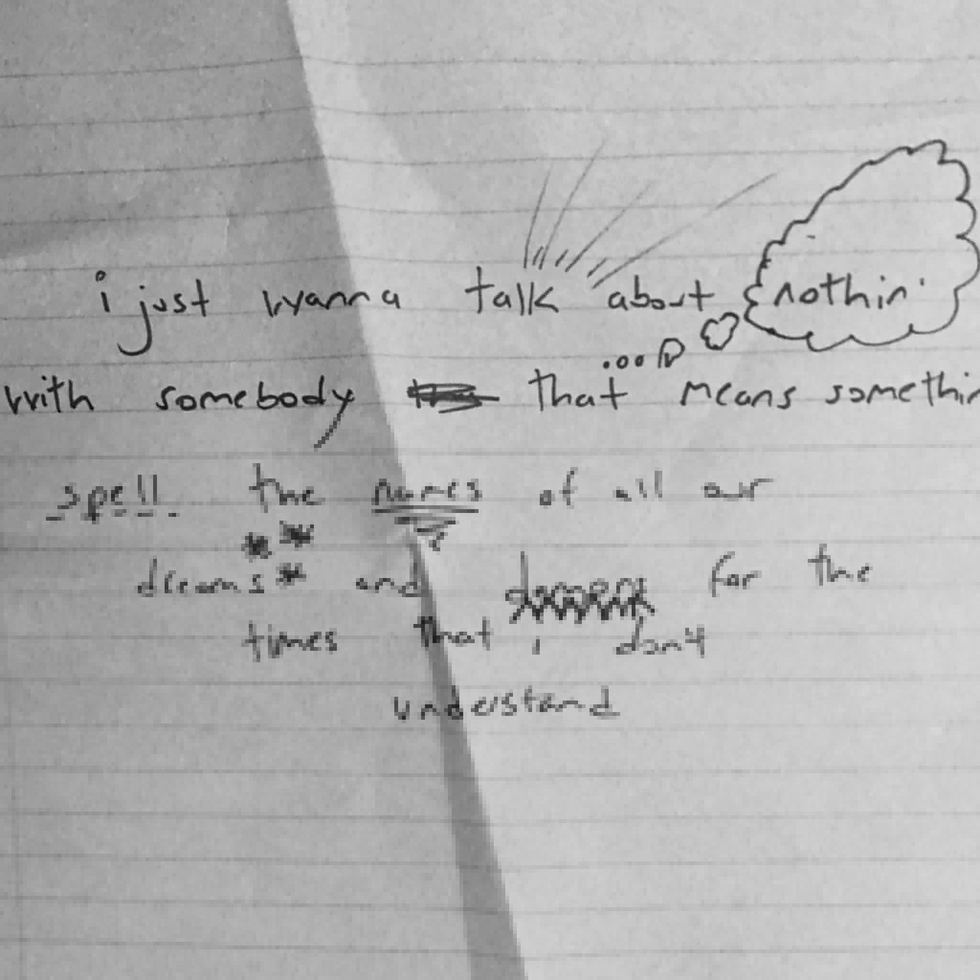 i just wanna talk about nothin'
with somebody that means somethin
spell the names of all our
dreams and for the
times that i don't
understand